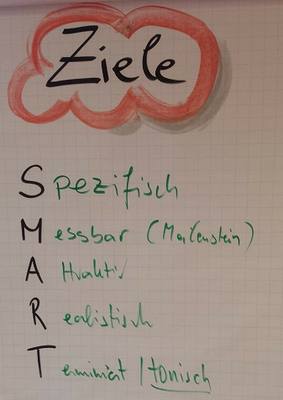 Ziele
Spezifisch
Messbar (Meilenstein)
Attraktiv
Realistisch
Terminiert / tonisch